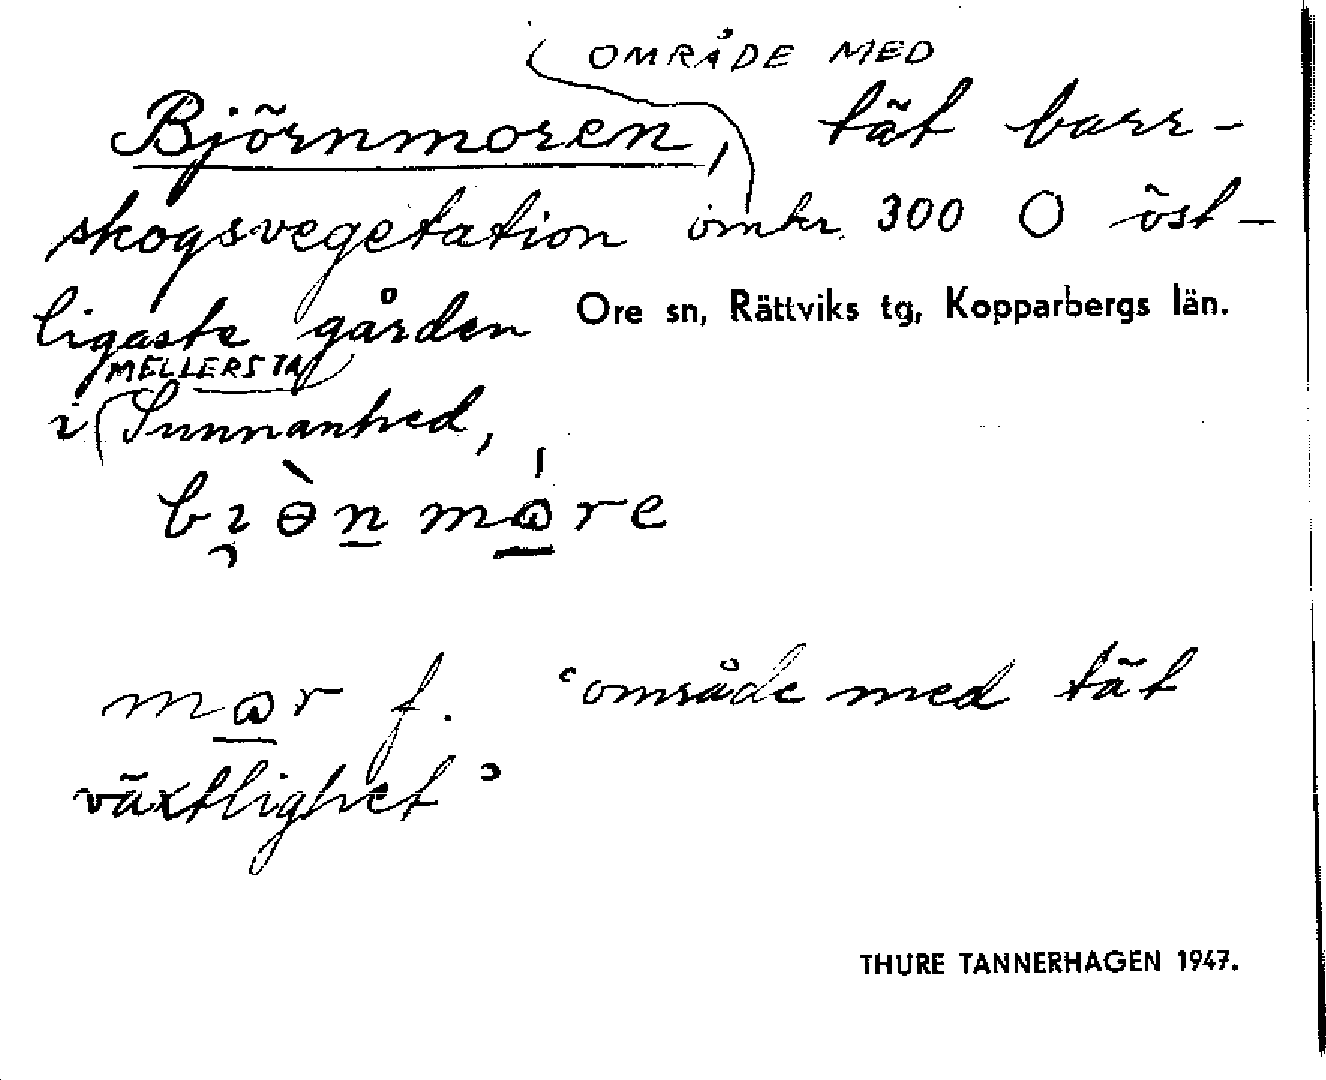 OMRÅDE MED
Björnmoren, tät barr-
skogsvegetation omkr. 300 O öst-
ligaste gården
Ore sn, Rättviks tg, Kopparbergs län.
MELLERSTA
i Sunnanhed,
mꞷr f. ‘område med tät
växtlighet’
THURE TANNERHAGEN 1947.